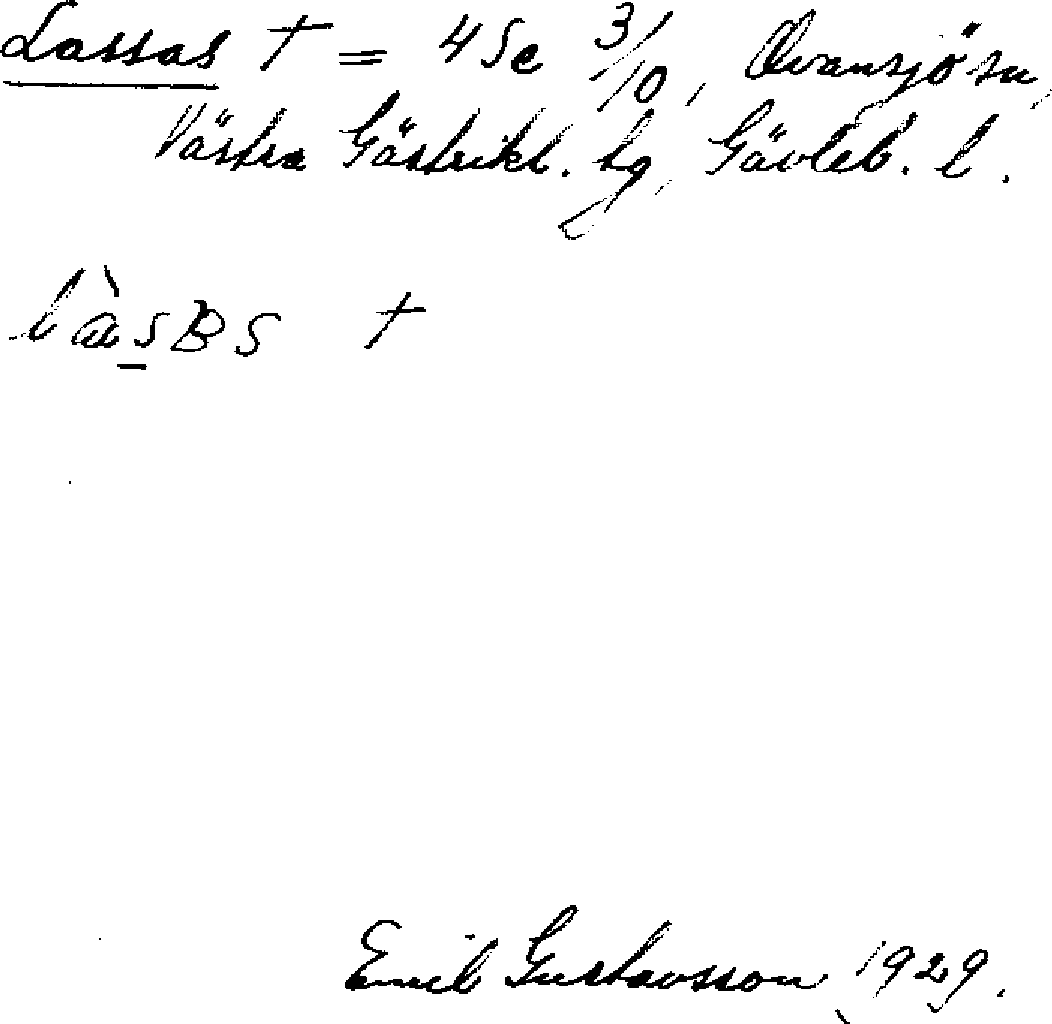 Lassas † = 4 Se 3/10, Ovansjö sn,
Västra Gästrikl. tg, Gävleb. l.
làsBs †
Emil Gustavsson 1929.